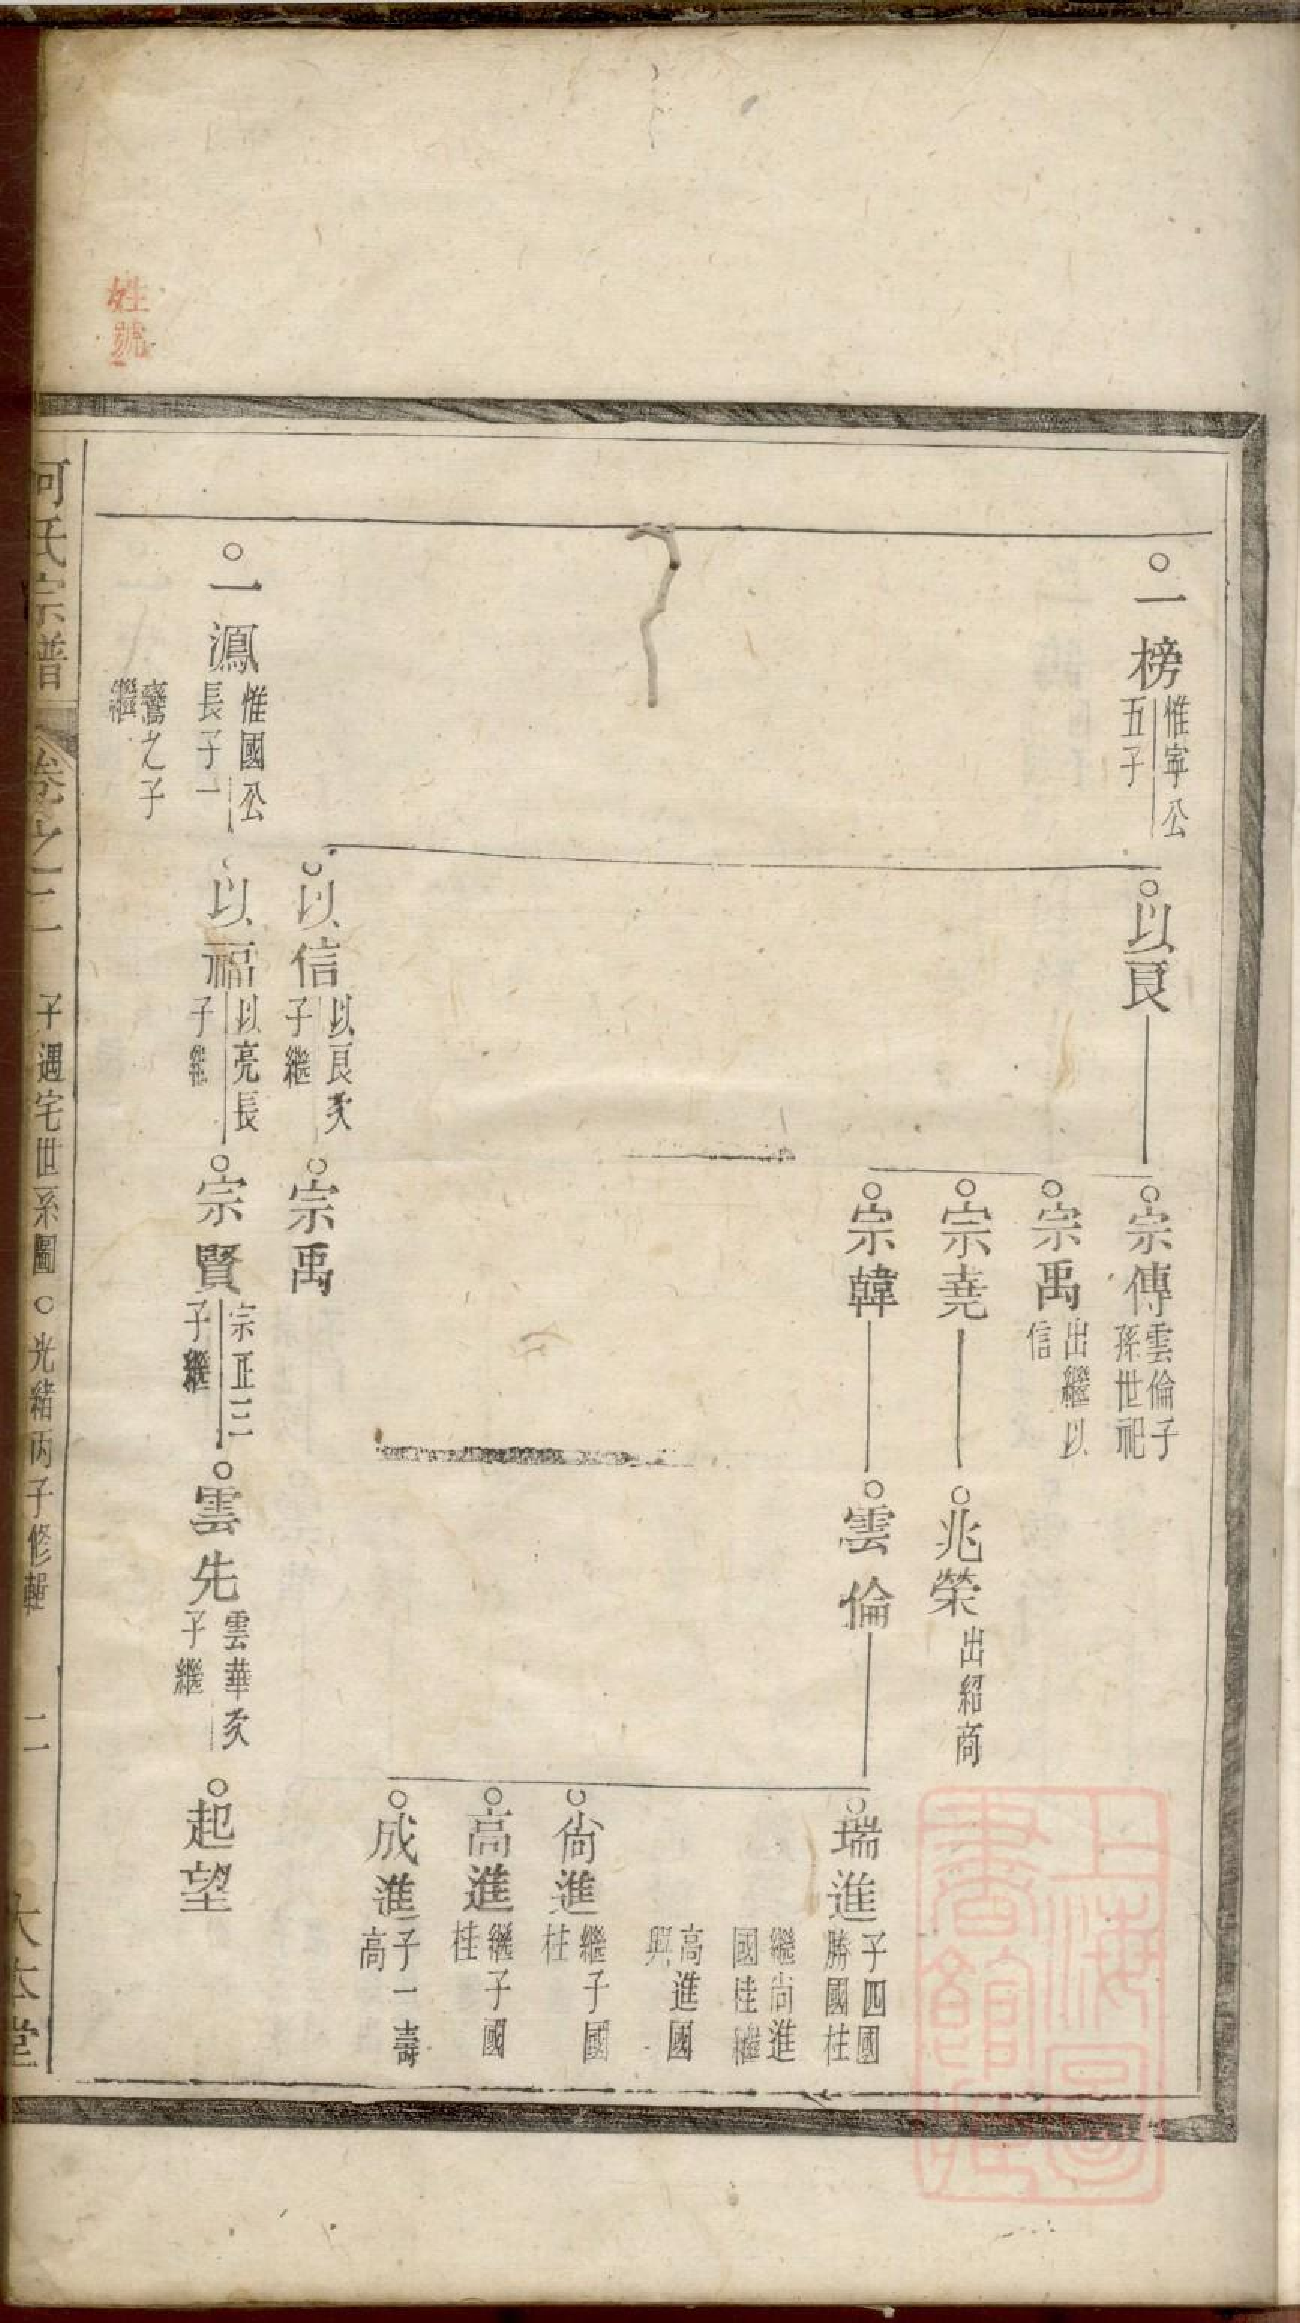 一榜
惟寧公
五子
以良
宗傳
雲倫子
孫世祀
宗禹
出繼以
信
宗堯
兆榮
出紹商
宗韓
雲倫
瑞進
子四國
勝國柱
繼尚進
國桂繼
高進國
興
尙進
繼子國
柱
高進
繼子國
桂
成進
子一壽
高
以信
以良次
子繼
宗禹
一鳳
惟國公
長子一
騫之子
繼
以福
以亮長
子繼
宗賢
宗正三
子繼
雲先
雲華次
子繼
起望
何氏宗譜
卷之二
子遇宅世系圖○光緒丙子修輯
二
大本堂
姓號
上海圖書館藏